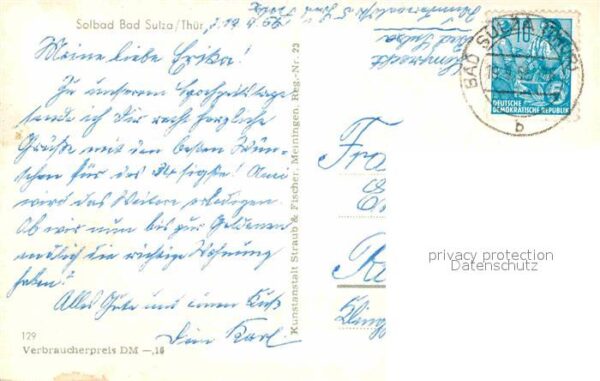 Solbad Bad Sulza/Thür
Meine liebe Erika!
Zu unserem Hochzeitstage
sende ich Dir recht herzliche
Grüße mit den besten Wün-
schen für das
wird das Weitere erledigen.
Ob wir nun bis zur Goldenen
endlich die richtige Wohnung
haben?
Alles Gute und einen Kuß
Dein Karl.
129
Verbraucherpreis DM —,16
Kunstanstalt Straub & Fischer, Meiningen, Reg.-Nr. 23
Bad Sulza
BAD SULZA (THÜR)
b
DEUTSCHE
DEMOKRATISCHE REPUBLIK
5
Fra
privacy protection
Datenschutz